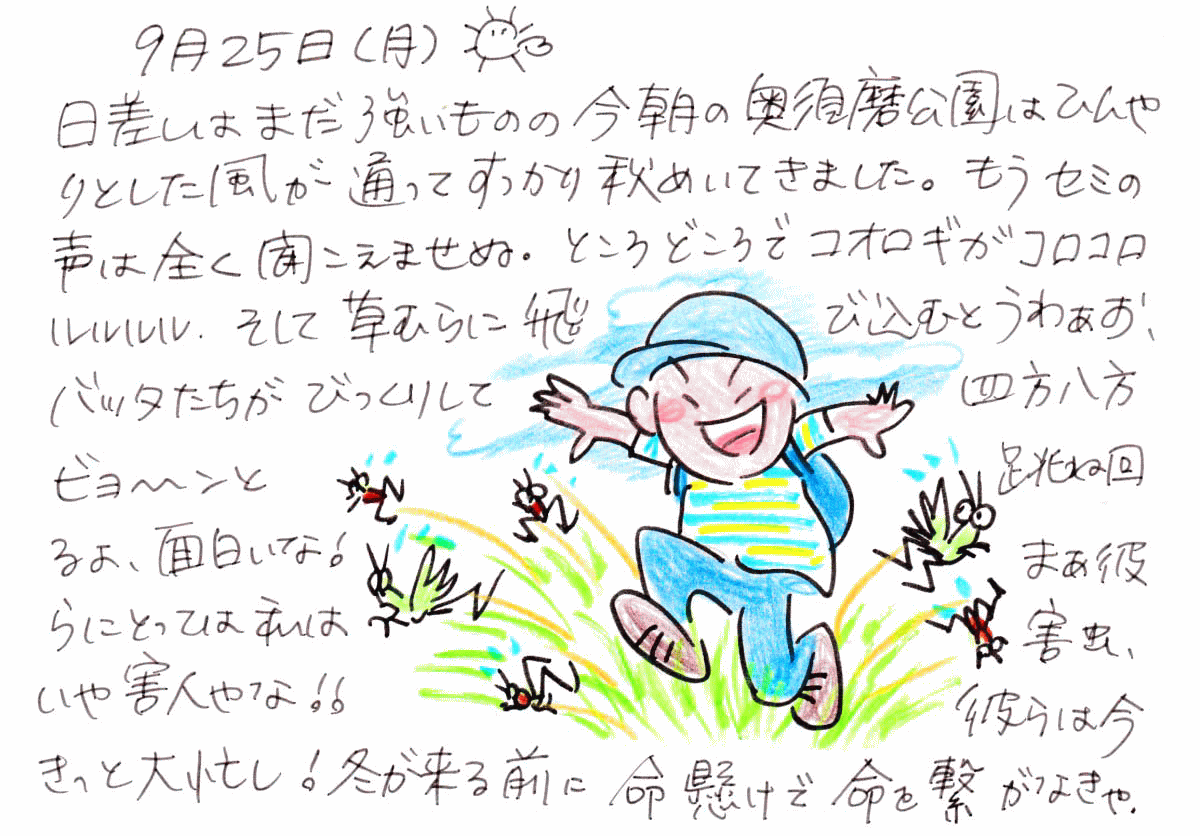 9月25日(月)
日差しはまだ強いものの今朝の奥須磨公園はひんや
りとした風が通ってすっかり秋めいてきました。もうセミの
声は全く聞こえませぬ。ところどころでコオロギがコロコロ
ルルルル、そして草むらに飛び込むとうわぁお、
バッタたちがびっくりして四方八方
ビョ〜〜ンと跳ね回
るよ、面白いでな!まぁ彼
らにとっては私は害虫、
いや害人やな!!彼らは今
きっと大忙し!冬が来る前に命懸けで命を繋がなきゃ。